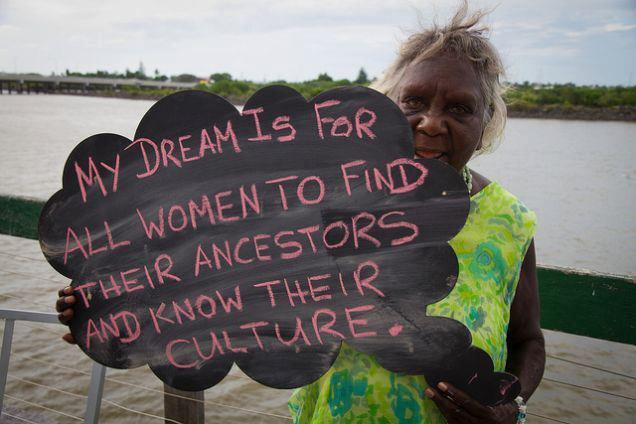 My Dream Is For
All Women To Find
Their Ancestors
And Know Their
Culture.